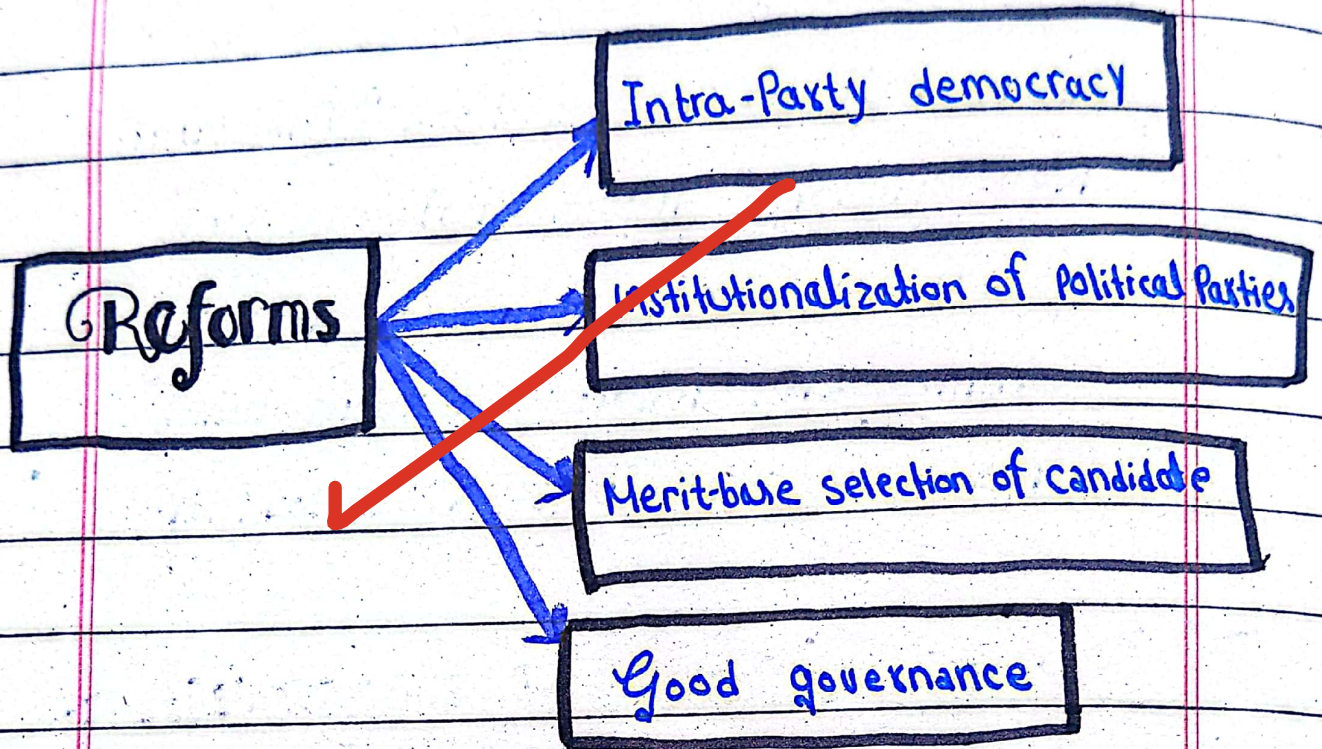 Intra-Party democracy
Reforms
Institutionalization of Political Parties
Merit-base selection of candidate
Good governance